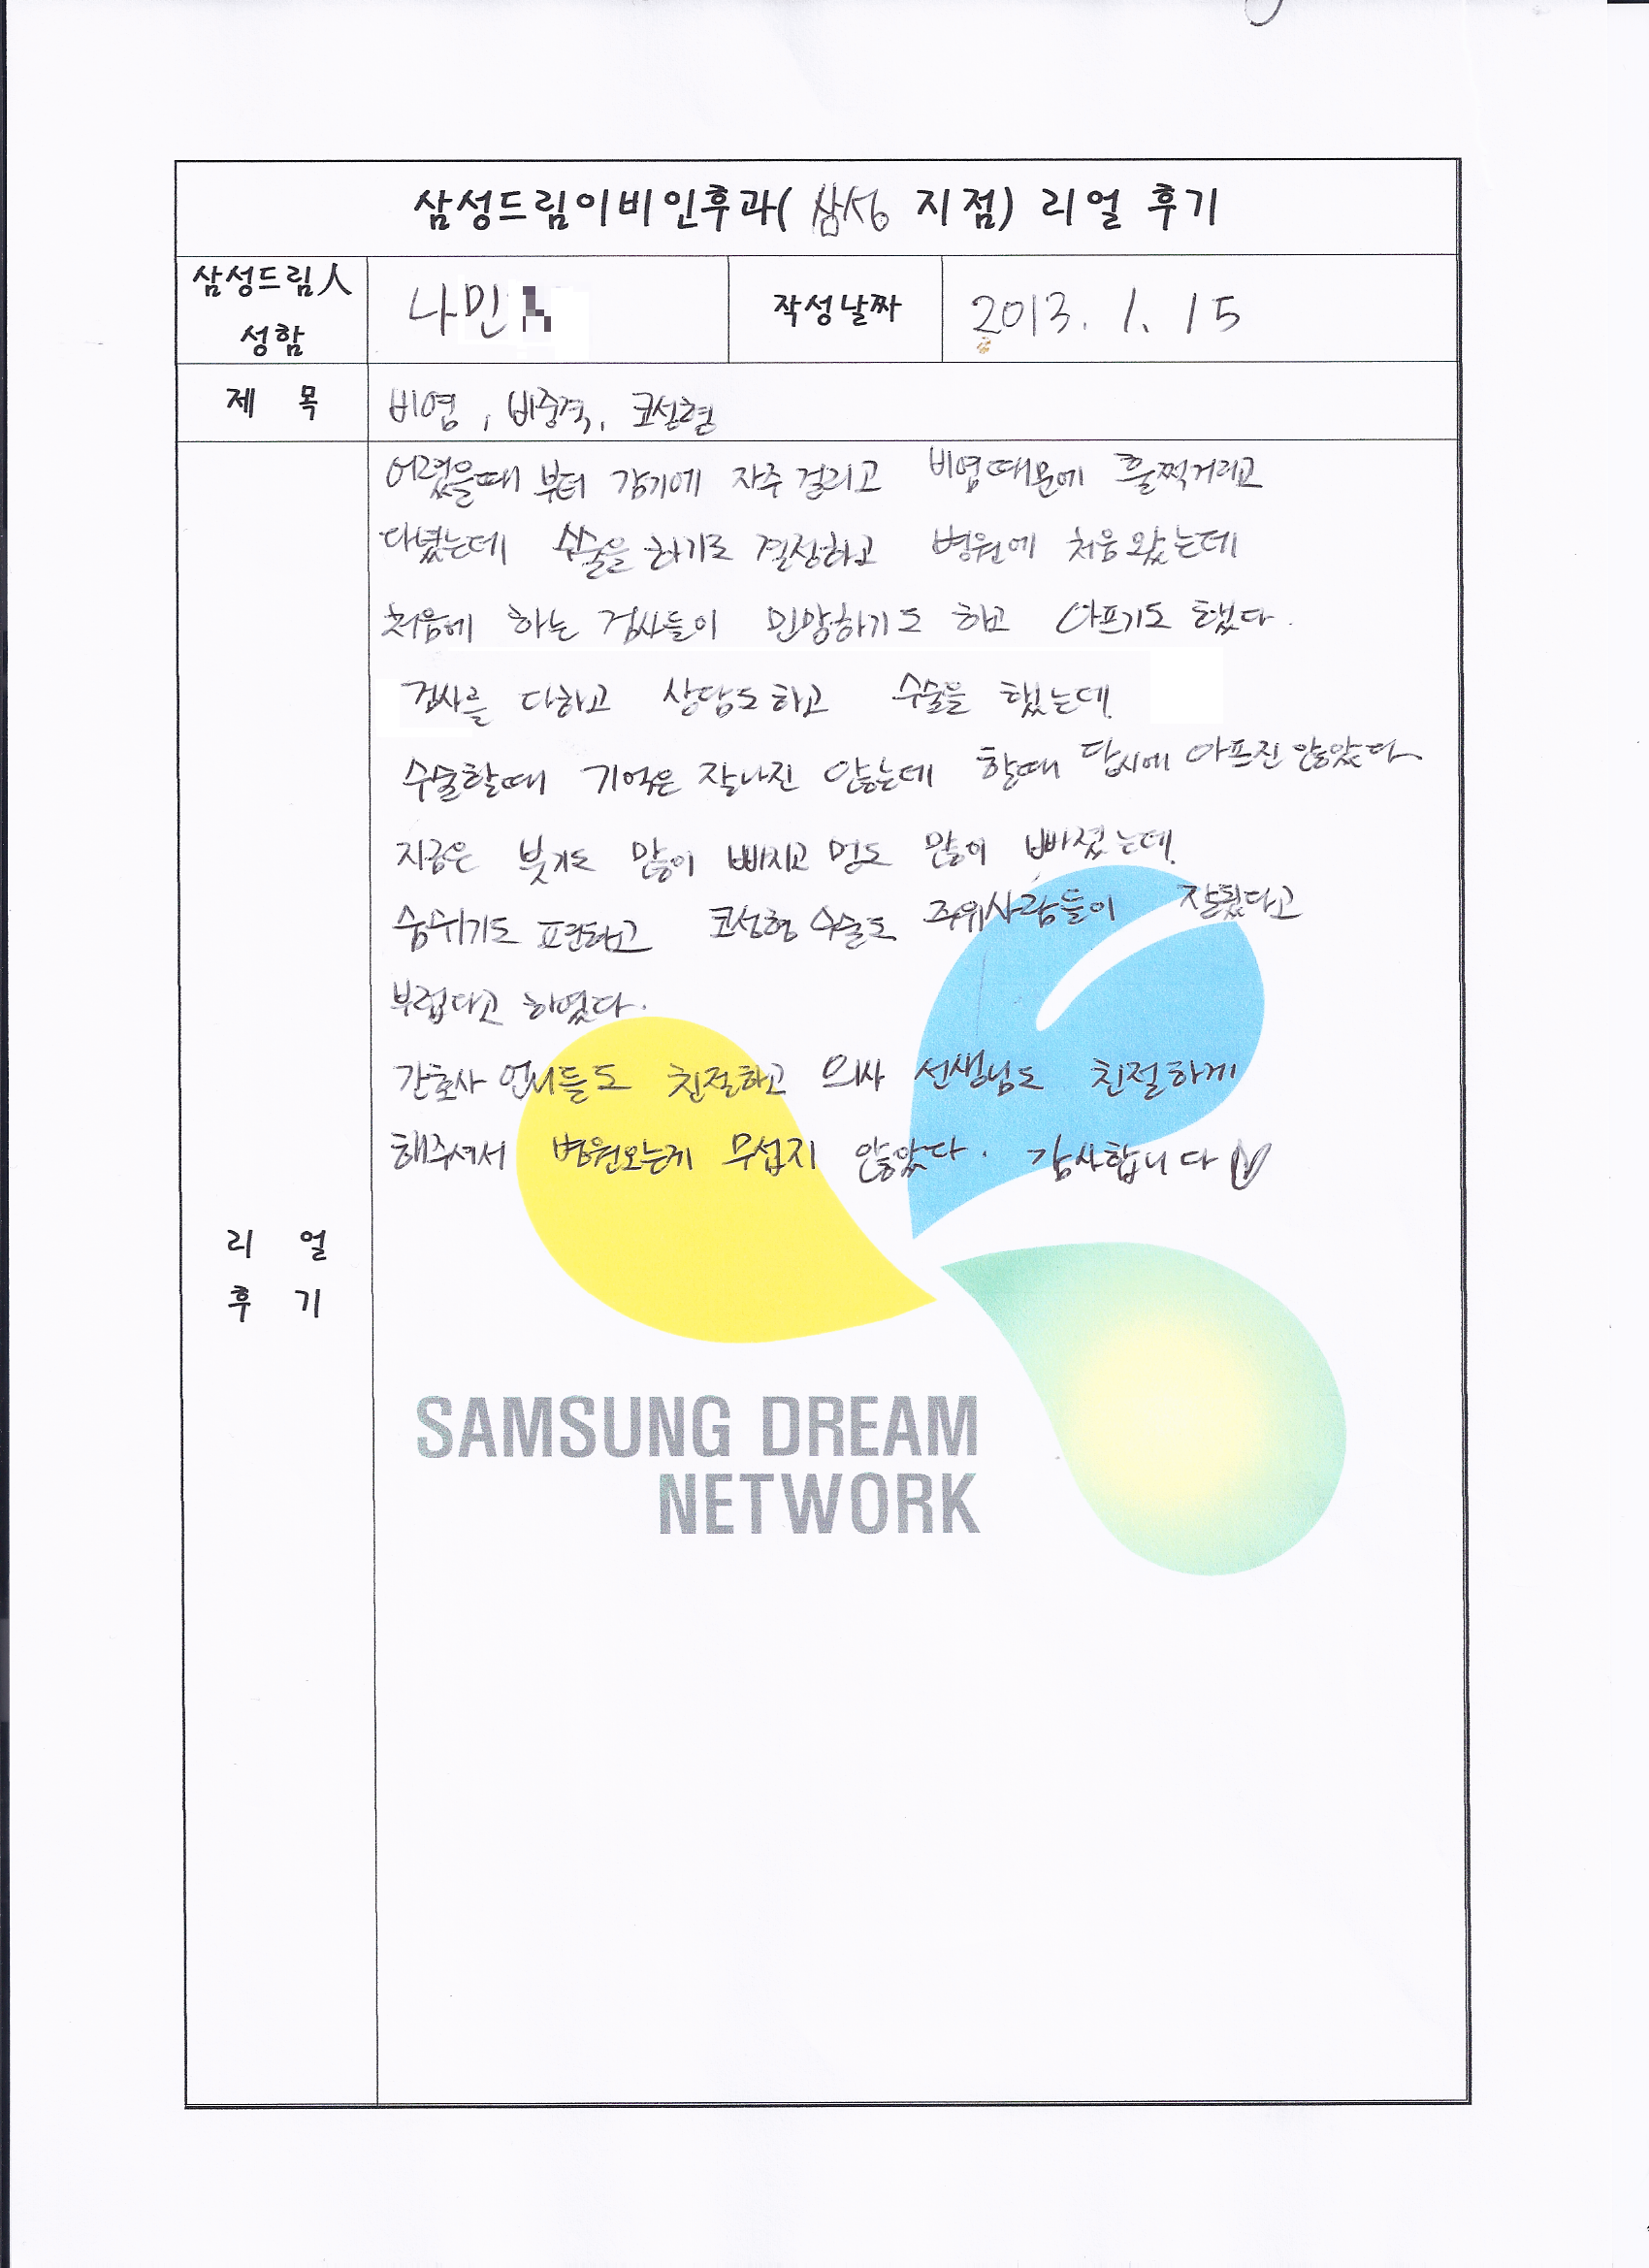 삼성드림이비인후과( 삼성 지점) 리얼 후기
삼성드림人
성함
나민
작성날짜
2013. 1. 15
제 목
비염, 비중격, 코성형
어렸을때 부터 감기에 자주 걸리고 비염때문에 훌쩍거리고
다녔는데 수술을 하기로 결정하고 병원에 처음 왔는데
처음에 하는 검사들이 민망하기도 하고 아프기도 했다.
검사를 다하고 상담도하고 수술을 했는데
수술할때 기억은 잘나진 않는데 할때 당시에 아프진 않았다
지금은 붓기도 많이 빠지고 멍도 많이 빠졌는데
숨쉬기도 편하고 코성형 수술도 주위사람들이 잘됐다고
부럽다고 하였다.
간호사 언니들도 친절하고 의사 선생님도 친절하게
해주셔서 병원오는게 무섭지 않았다. 감사합니다
리 얼
후 기
SAMSUNG DREAM
NETWORK